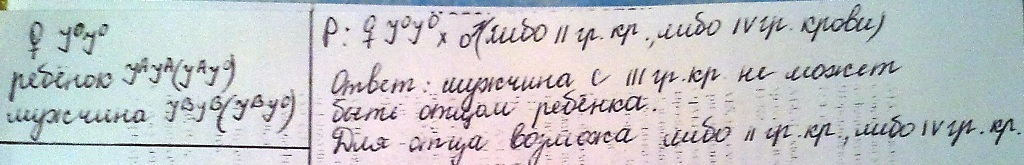 ♀ y⁰y⁰
ребёнок yᴬyᴬ(yᴬy⁰)
мужчина yᴮyᴮ(yᴮy⁰)
P: ♀ y⁰y⁰ x ♂(либо II гр. кр., либо IV гр. крови)
Ответ: мужчина с III гр. кр не может
быть отцом ребёнка.
Для отца возможа либо II гр. кр, либо IV гр. кр.